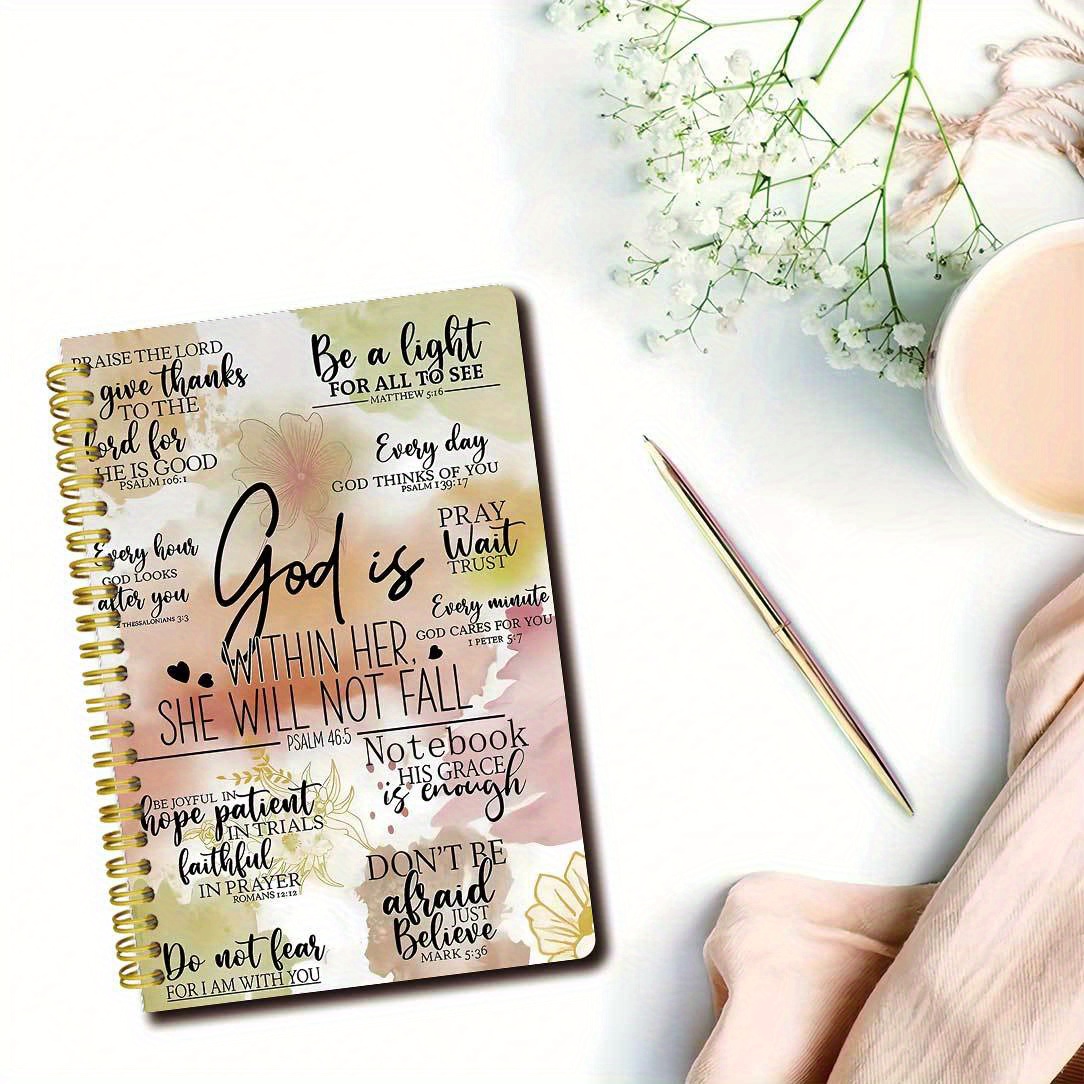 PRAISE THE LORD
give thanks
TO THE
Lord for
HE IS GOOD
PSALM 106:1
Be a light
FOR ALL TO SEE
MATTHEW 5:16
Every day
GOD THINKS OF YOU
PSALM 139:17
PRAY
Wait
TRUST
Every hour
GOD LOOKS
after you
2 THESSALONIANS 3:3
Every minute
GOD CARES FOR YOU
1 PETER 5:7
God is
WITHIN HER,
SHE WILL NOT FALL
PSALM 46:5
Notebook
HIS GRACE
is enough
BE JOYFUL IN
hope patient
IN TRIALS
faithful
IN PRAYER
ROMANS 12:12
DON'T BE
afraid
JUST
Believe
MARK 5:36
Do not fear
FOR I AM WITH YOU